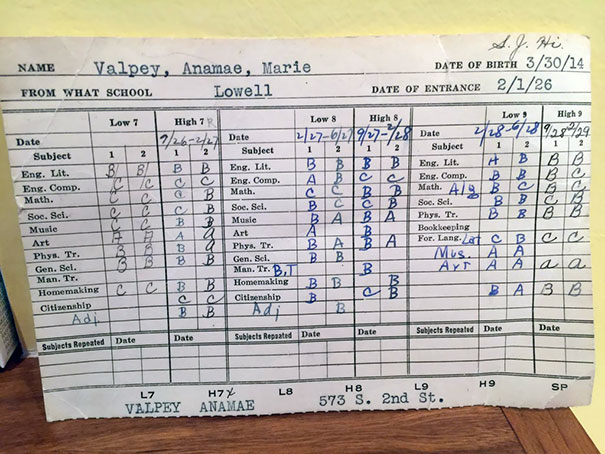 S. J. Hi.
NAME Valpey, Anamae, Marie DATE OF BIRTH 3/30/14
FROM WHAT SCHOOL Lowell DATE OF ENTRANCE 2/1/26
Low 7 High 7 Low 8 High 8 Low 9 High 9
Date 9/26-2/27 Date 2/27-6/27 9/27-2/28 Date 2/28-6/28 9/28 2/29
Subject 1 2 1 2 Subject 1 2 1 2 Subject 1 2 1 2
Eng. Lit. B B B B Eng. Lit. B B B B Eng. Lit. A B B B
Eng. Comp. C C C C Eng. Comp. A B C C Eng. Comp. B B B C
Math. C C C B Math. C C B B Math. Alg B C B C
Soc. Sci. C C C B Soc. Sci. B C C B Soc. Sci. B B C B
Music C C B B Music B A B A Phys. Tr. B B B B
Art A A A a Art A B Bookkeeping
Phys. Tr. B B B a Phys. Tr. B A B A For. Lang. Lat C B C C
Gen. Sci. B B B B Gen. Sci. B B Mus. A A
Man. Tr. Man. Tr. B,T B Art A A a a
Homemaking C C B B Homemaking B B B B A B B
Citizenship C C Citizenship B C B
Adj B B Adj B
Subjects Repeated Date Date Subjects Repeated Date Date Subjects Repeated Date Date
L7 H7 L8 H8 L9 H9 SP
VALPEY ANAMAE 573 S. 2nd St.